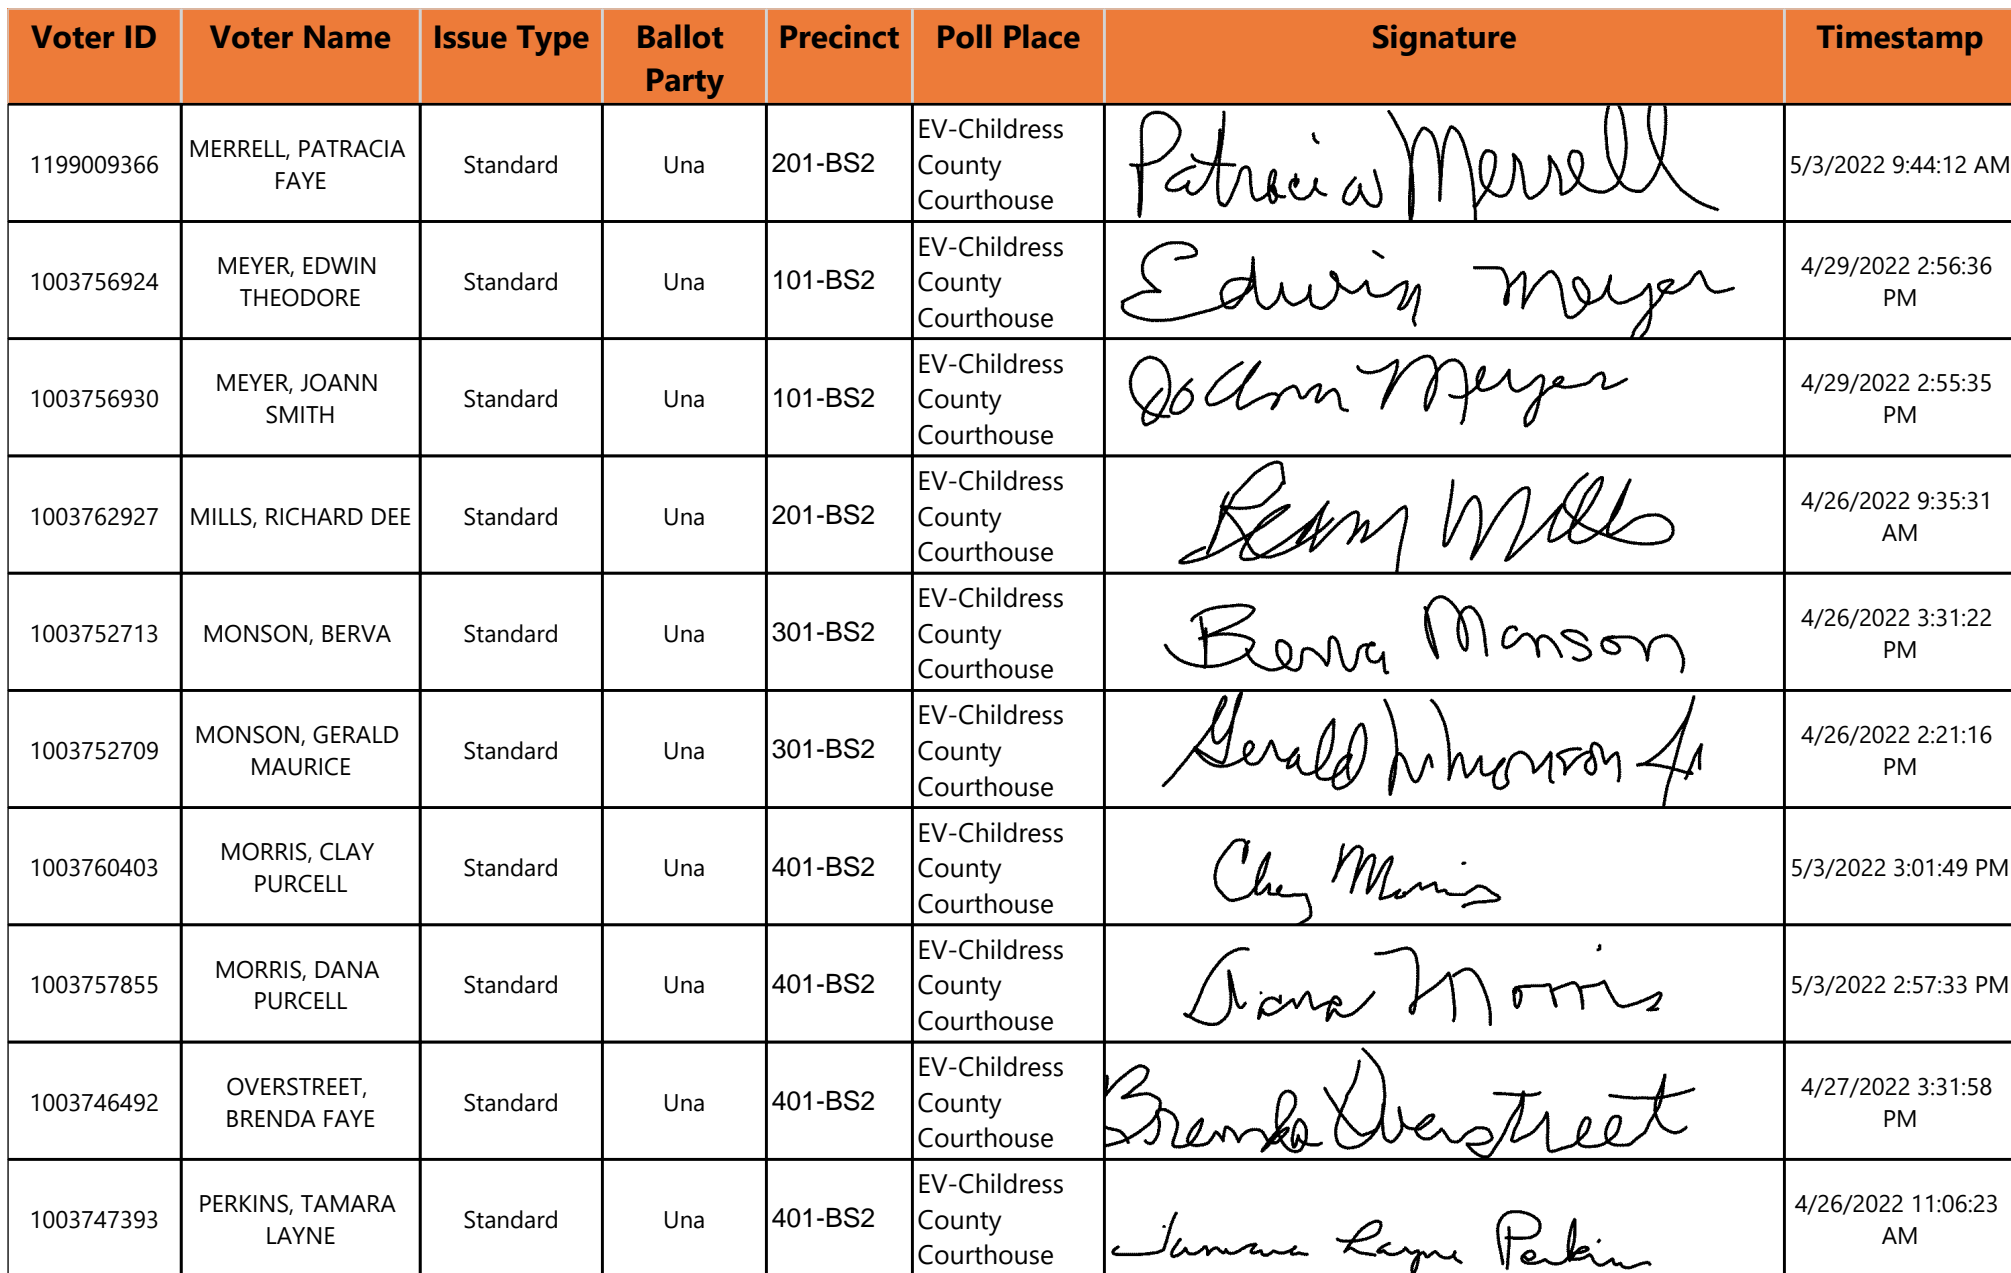 Voter ID Voter Name Issue Type Ballot Party Precinct Poll Place Signature Timestamp
1199009366 MERRELL, PATRACIA FAYE Standard Una 201-BS2 EV-Childress County Courthouse Patracia Merrell 5/3/2022 9:44:12 AM
1003756924 MEYER, EDWIN THEODORE Standard Una 101-BS2 EV-Childress County Courthouse Edwin Meyer 4/29/2022 2:56:36 PM
1003756930 MEYER, JOANN SMITH Standard Una 101-BS2 EV-Childress County Courthouse JoAnn Meyer 4/29/2022 2:55:35 PM
1003762927 MILLS, RICHARD DEE Standard Una 201-BS2 EV-Childress County Courthouse Mills 4/26/2022 9:35:31 AM
1003752713 MONSON, BERVA Standard Una 301-BS2 EV-Childress County Courthouse Berva Monson 4/26/2022 3:31:22 PM
1003752709 MONSON, GERALD MAURICE Standard Una 301-BS2 EV-Childress County Courthouse Gerald M Monson Jr 4/26/2022 2:21:16 PM
1003760403 MORRIS, CLAY PURCELL Standard Una 401-BS2 EV-Childress County Courthouse Clay Morris 5/3/2022 3:01:49 PM
1003757855 MORRIS, DANA PURCELL Standard Una 401-BS2 EV-Childress County Courthouse Dana Morris 5/3/2022 2:57:33 PM
1003746492 OVERSTREET, BRENDA FAYE Standard Una 401-BS2 EV-Childress County Courthouse Brenda Overstreet 4/27/2022 3:31:58 PM
1003747393 PERKINS, TAMARA LAYNE Standard Una 401-BS2 EV-Childress County Courthouse Tamara Layne Perkins 4/26/2022 11:06:23 AM